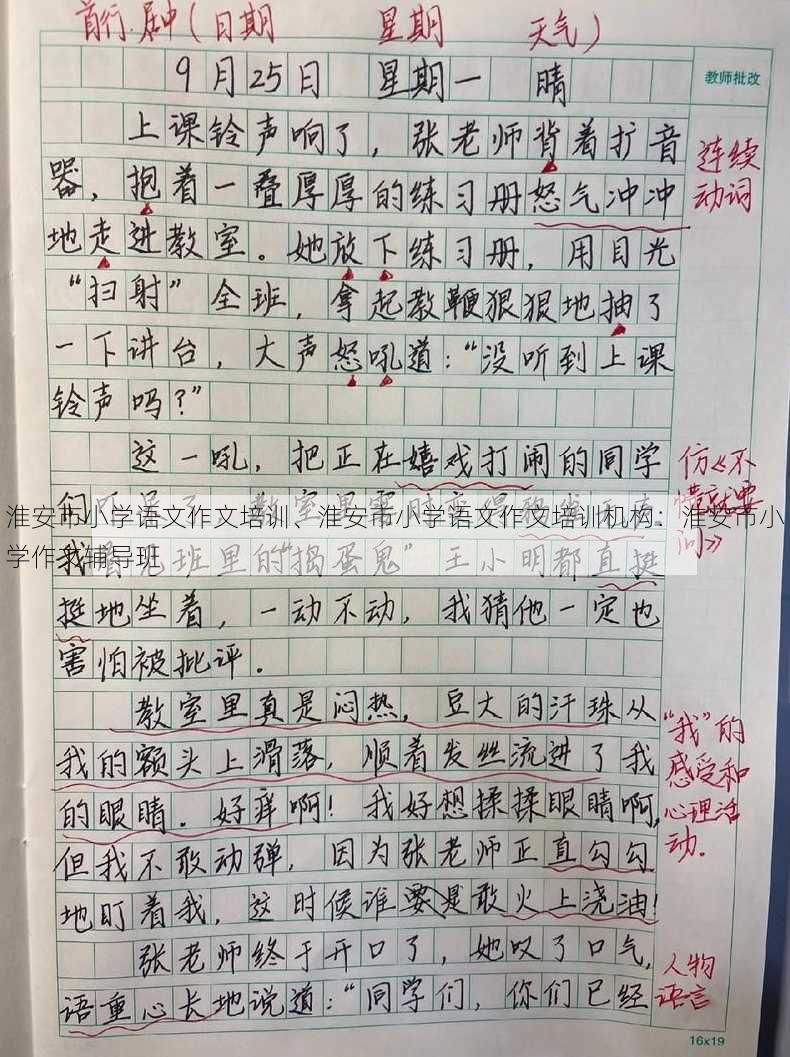 首行.居中(日期 星期 天气)
教师批改
9月25日 星期一 晴
上课铃声响了，张老师背着扩音
连续
动词
器，抱着一叠厚厚的练习册怒气冲冲
地走进教室。她放下练习册，用目光
“扫射”全班，拿起教鞭狠狠地抽了
一下讲台，大声怒吼道：“没听到上课
铃声吗？”
这一吼，把正在嬉戏打闹的同学
仿《不
懂就要
问》
们
淮安市小学语文作文培训、淮安市小学语文作文培训机构：淮安市小
学作文辅导班
班里的“捣蛋鬼”王小明都直挺
挺地坐着，一动不动，我猜他一定也
害怕被批评．
教室里真是闷热，豆大的汗珠从
我的额头上滑落，顺着发丝流进了我
的眼睛．好痒啊！我好想揉揉眼睛啊，
但我不敢动弹，因为张老师正直勾勾
地盯着我，这时候谁要是敢火上浇油！
“我”的
感受和
心理活
动．
张老师终于开口了，她叹了口气，
语重心长地说道：“同学们，你们已经
人物
语言
16x19